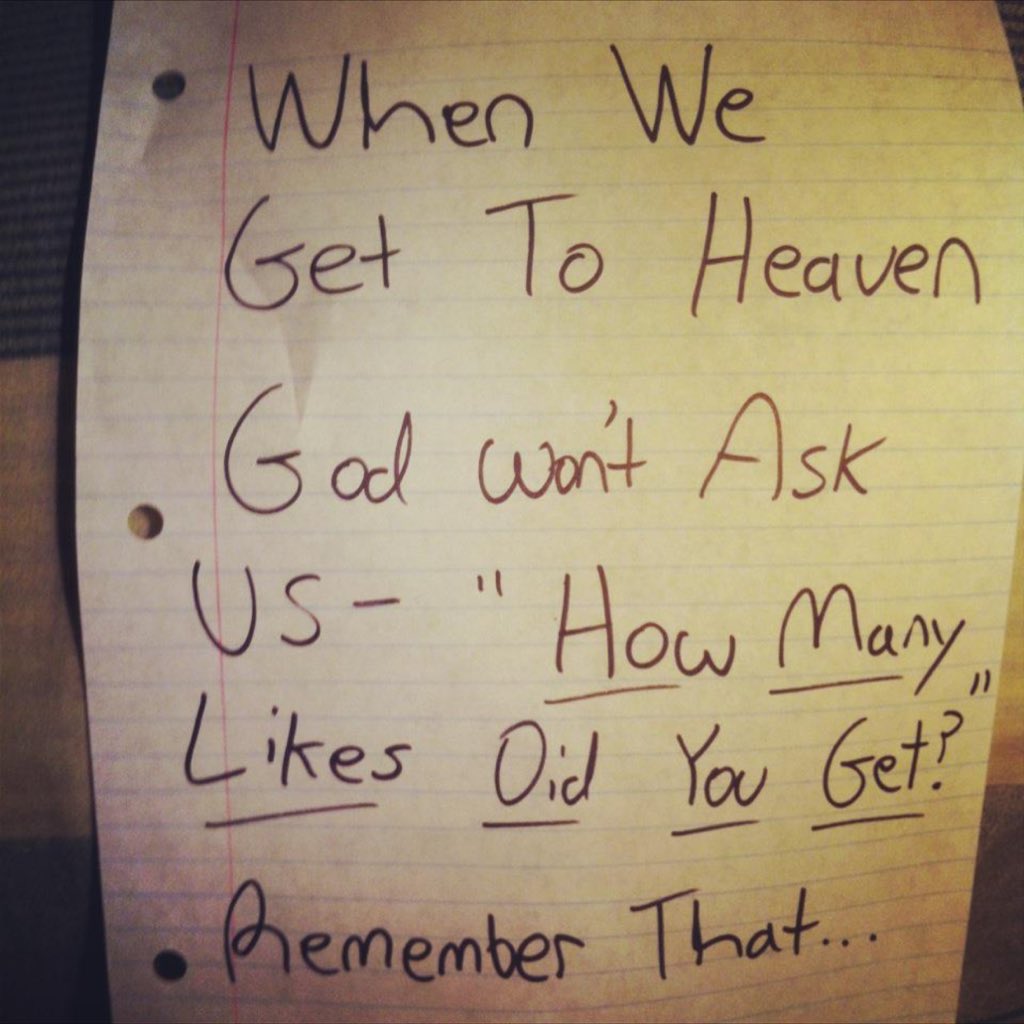 When We
Get To Heaven
God won't Ask
US - "How Many
Likes Did You Get?"
Remember That...